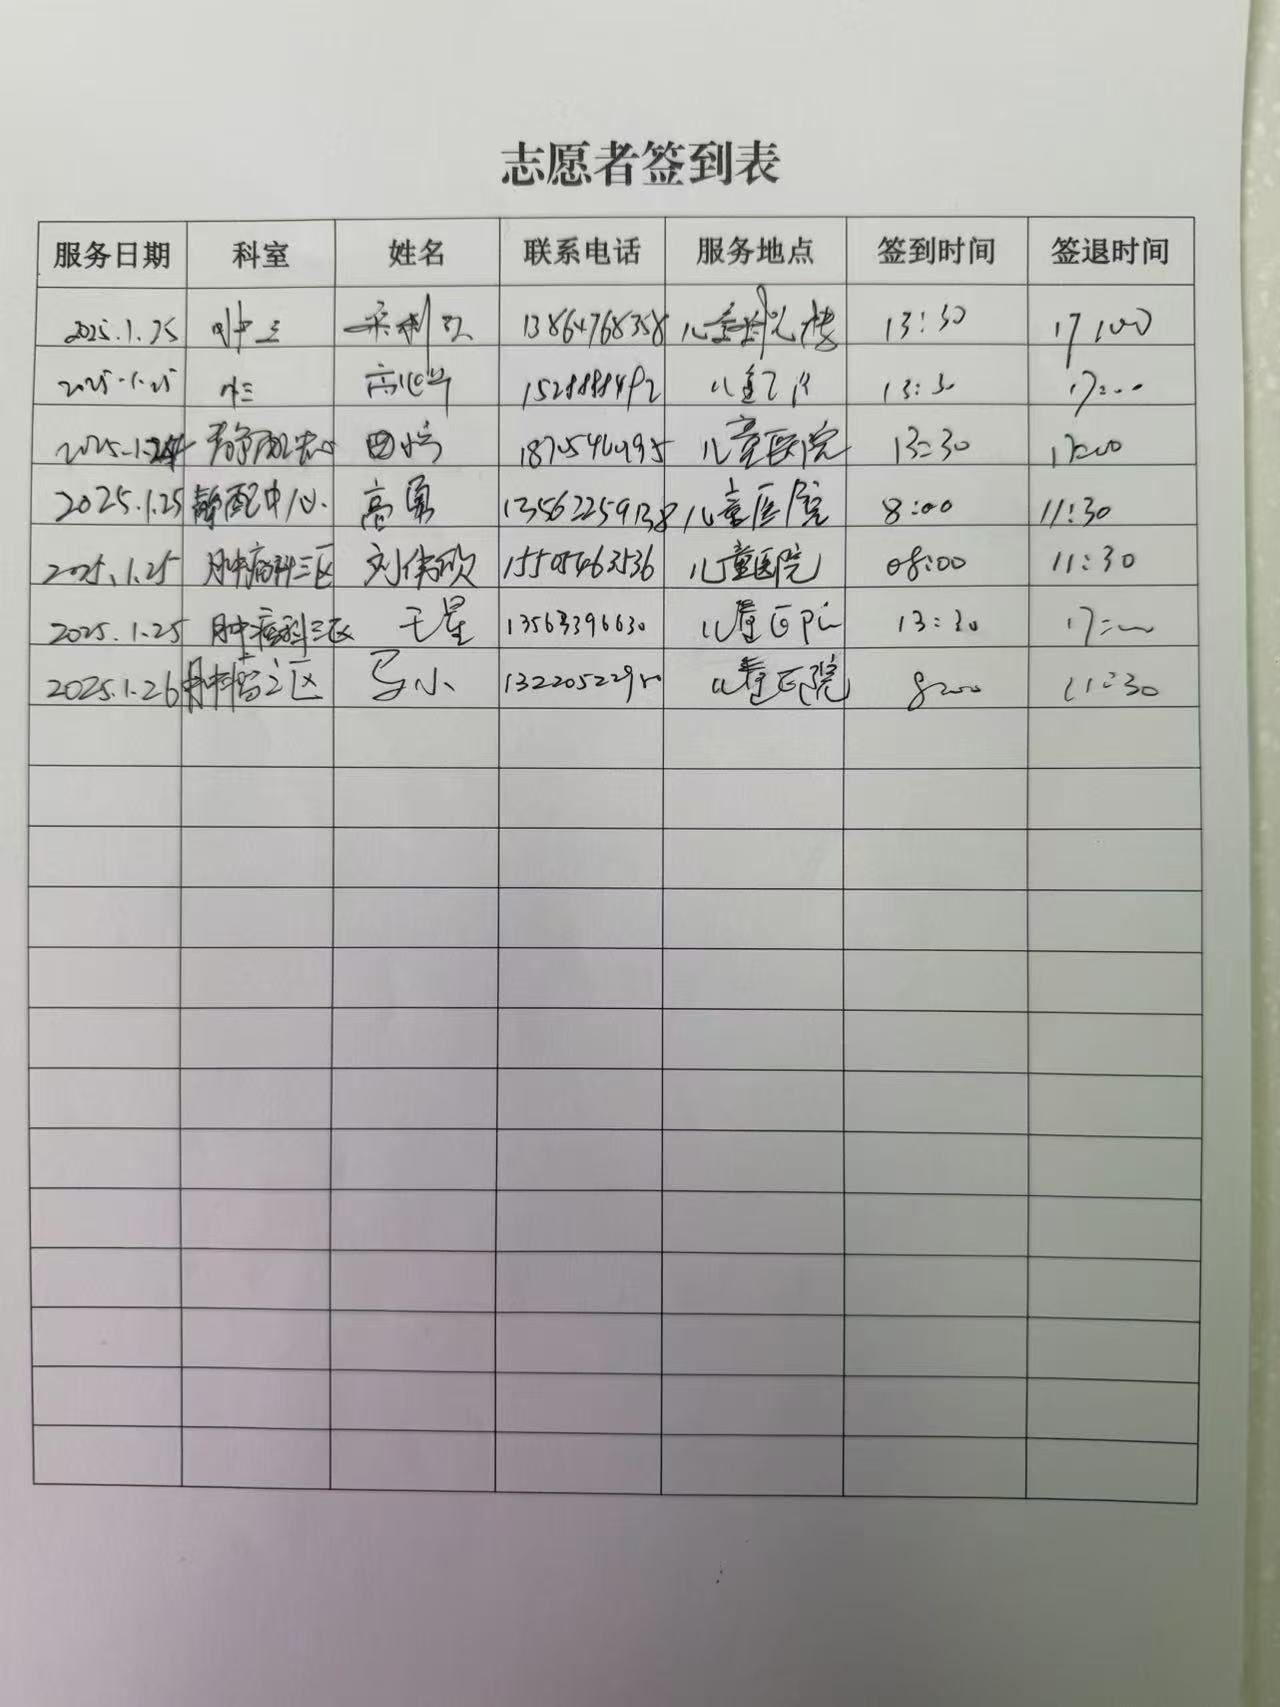 志愿者签到表
服务日期 科室 姓名 联系电话 服务地点 签到时间 签退时间
2025.1.25 13864768358 儿童 楼 13:30 17:00
2025.1.25 高 儿童 13:30 17:00
静配中心 田 儿童医院 13:30 17:00
2025.1.25 静配中心 高勇 13562259138 儿童医院 8:00 11:30
2025.1.25 肿瘤科三区 刘伟欣 15505463536 儿童医院 08:00 11:30
2025.1.25 肿瘤科三区 王星 儿童医院 13:30 17:00
2025.1.26 区 马小 儿童医院 8:00 11:30